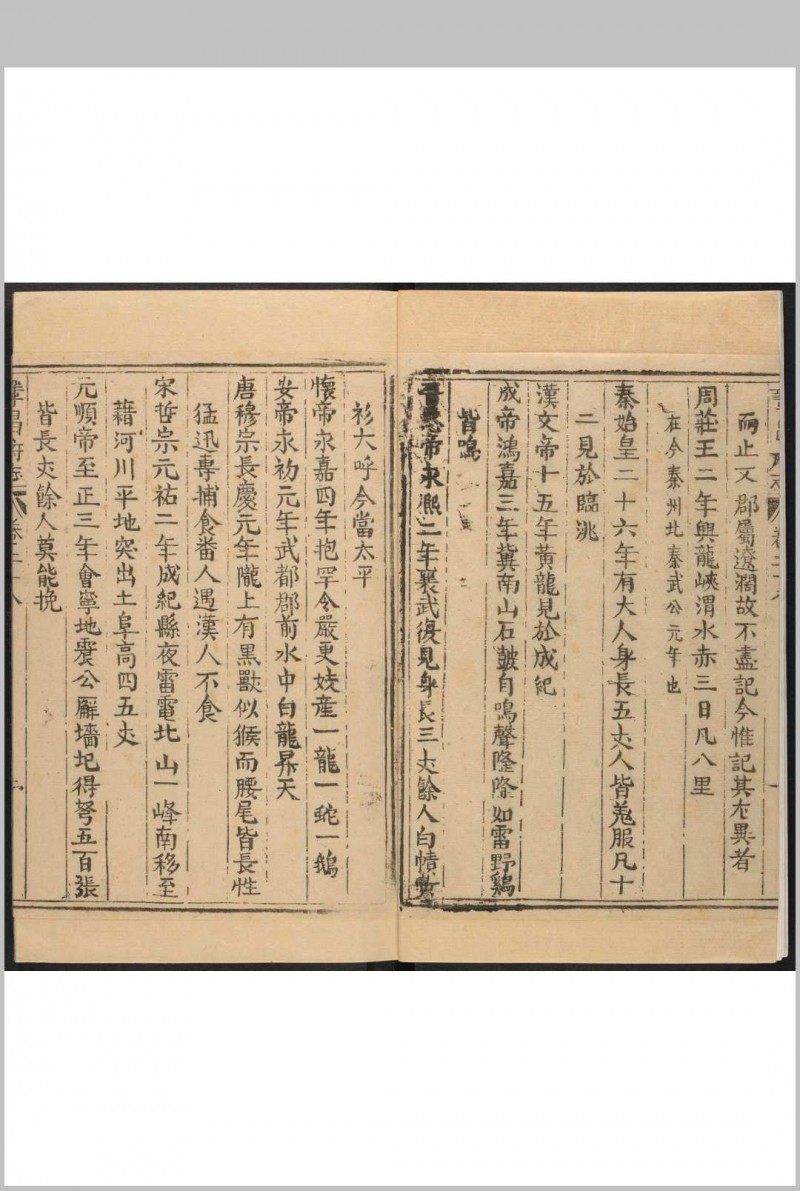 而止又郡屬遼濶故不盡記今惟記其尤異者
周莊王二年興龍峽渭水赤三日凡八里
在今秦州北秦武公元年也
秦始皇二十六年有大人身長五丈人皆蒐服凡十
二見於臨洮
漢文帝十五年黃龍見於成紀
成帝鴻嘉三年冀南山石鼓自鳴聲隆隆如雷野鷄
皆鳴
帝永熙二年襄武復見身長三丈餘人白幘
衫大呼今當太平
懷帝永嘉四年抱罕令嚴更妓產一龍一鵝
安帝永初元年武都郡前水中白龍昇天
唐穆宗長慶元年隴上有黑獸似猴而腰尾皆長性
猛迅專捕食畨人遇漢人不食
宋哲宗元祐二年成紀縣夜雷電北山一峰南移至
藉河川平地突出土阜高四五丈
元順帝至正三年會寧地震公廨墻圮得弩五百張
皆長丈餘人莫能挽
鞏昌府志 卷二十八 一